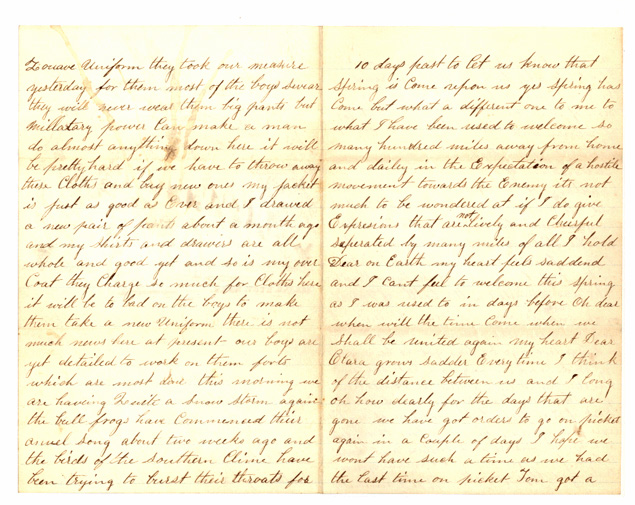 Zouave Uniform they took our measure
yesterday for them most of the boys swear
they will never wear them big pants but
millatary power can make a man
do almost anything down here it will
be pretty hard if we have to throw away
these Cloths and buy new ones my jacket
is just as good as Ever and I drawed
a new pair of pants about a month ago
and my shirts and drawers are all
whole and good yet and so is my over
Coat they Charge so much for Cloths here
it will be to bad on the boys to make
them take a new Uniform there is not
much news here at present our boys are
yet detailed to work on them forts
which are most done this morning we
are having Quite a snow storm again
the bull frogs have Commenced their
anual song about two weeks ago and
the birds of the southern Clime have
been trying to burst their throats for
10 days past to let us know that
spring is Come upon us yes spring has
Come but what a different one to me to
what I have been used to welcome so
many hundred miles away from home
and dailey in the Expectation of a hostile
movement towards the Enemy its not
much to be wondered at if I do give
Expresions that are not lively and Cheerful
seperated by many miles of all I hold
Dear on Earth my heart feels saddend
and I Cant feel to welcome this spring
as I was used to in days before Oh dear
when will the time Come when we
shall be united again my heart Dear
Clara grows sadder Every time I think
of the distance between us and I long
oh how dearly for the days that are
gone we have got orders to go on picket
again in a Couple of days I hope we
wont have such a time as we had
the last time on picket Tom got a